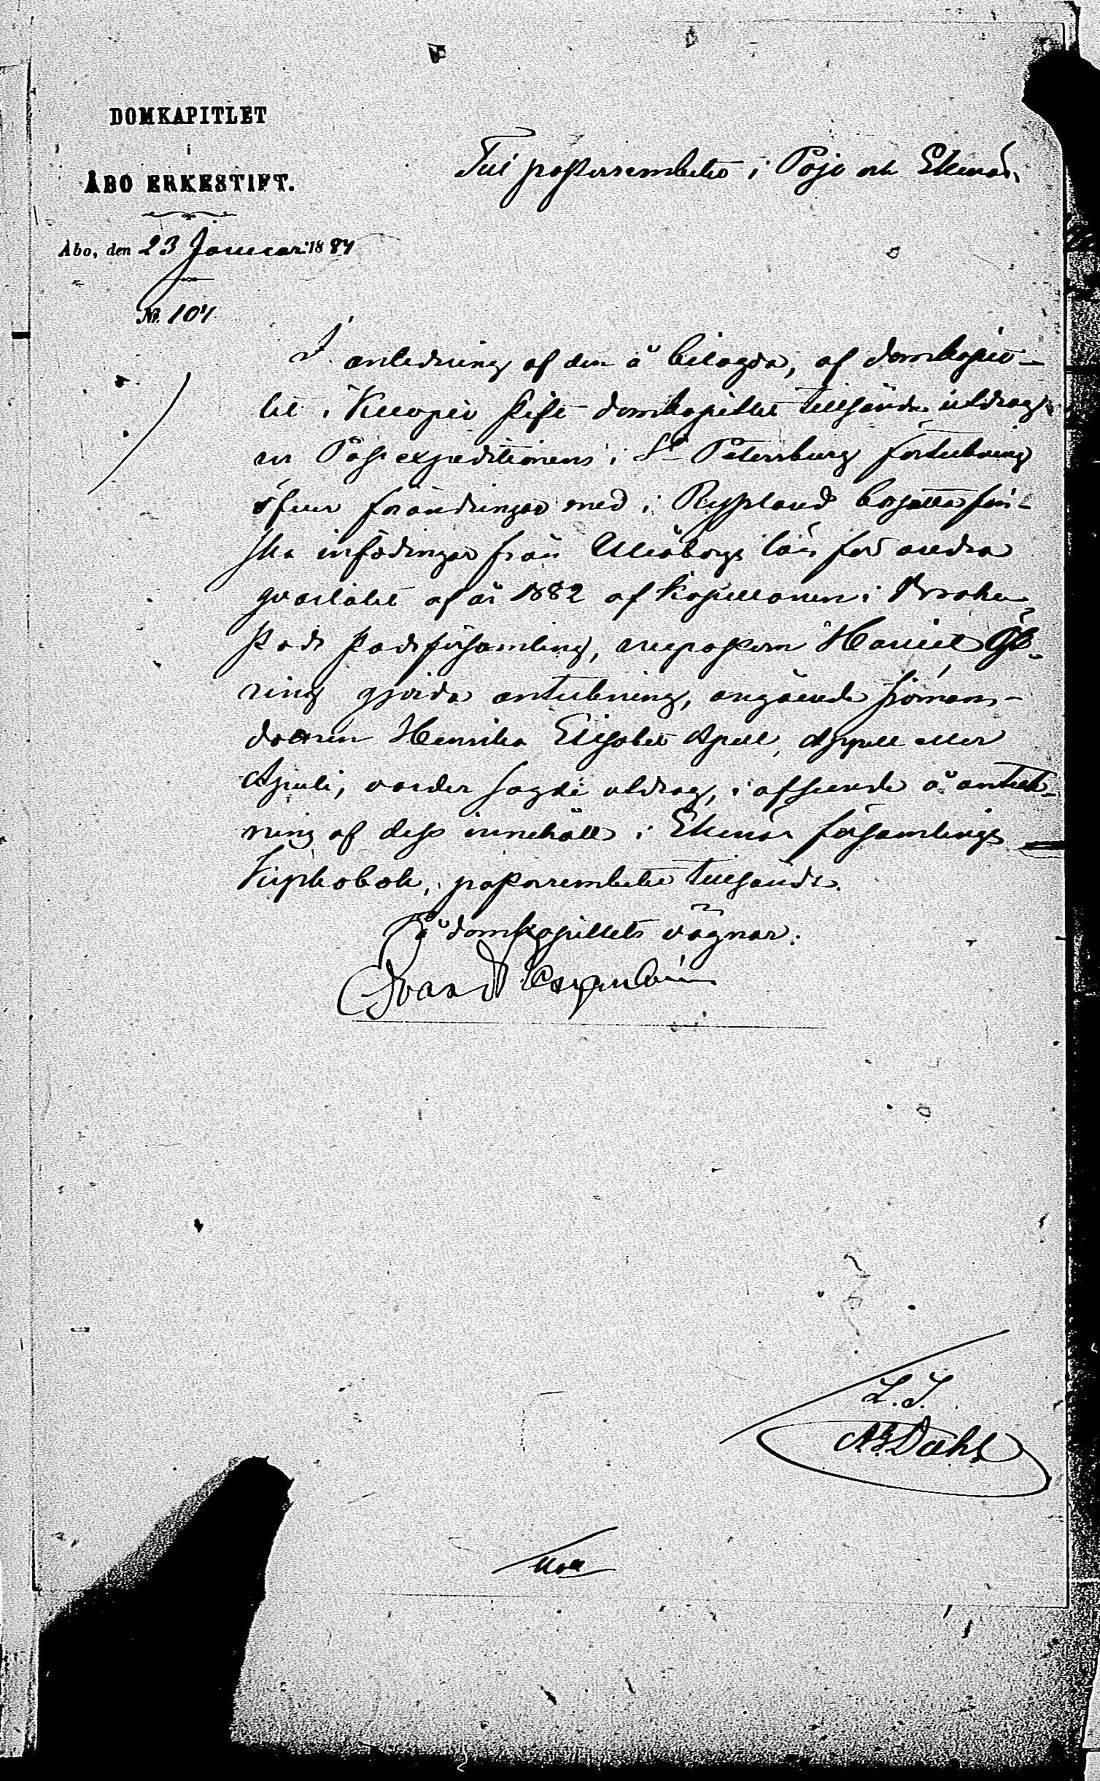 DOMKAPITLET
i
ÅBO ERKESTIFT.
Åbo, den 23 Januari 1884
№ 104
Till pastorsembetet i Pojo och Ekenäs.
I anledning af den å bilagda, af domkapit-
let i Kuopio stift domkapitlet tillsände utdrag
ur Passexpeditionens i St Petersburg förteckning
öfver förändringar med i Ryssland bosatta fin-
ska infödingar från Uleåborgs län för andra
qvartalet af år 1882 af kapellanen i Brahe-
stads stadsförsamling, vicepastorn
gjorda anteckning, angående sjömans-
dottren Henrika Elisabet Apell, Appell eller
Apeli, varder sagde utdrag, i afseende å anteck-
ning af dess innehåll i Ekenäs församlings
kyrkobok, pastorsembetet tillsändt.
På domkapitlets vägnar: